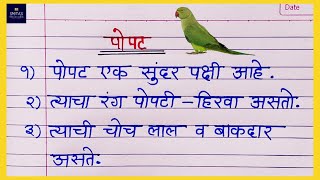 Date
पोपट
१) पोपट एक सुंदर पक्षी आहे.
२) त्याचा रंग पोपटी-हिरवा असतो.
३) त्याची चोच लाल व बाकदार
असते.